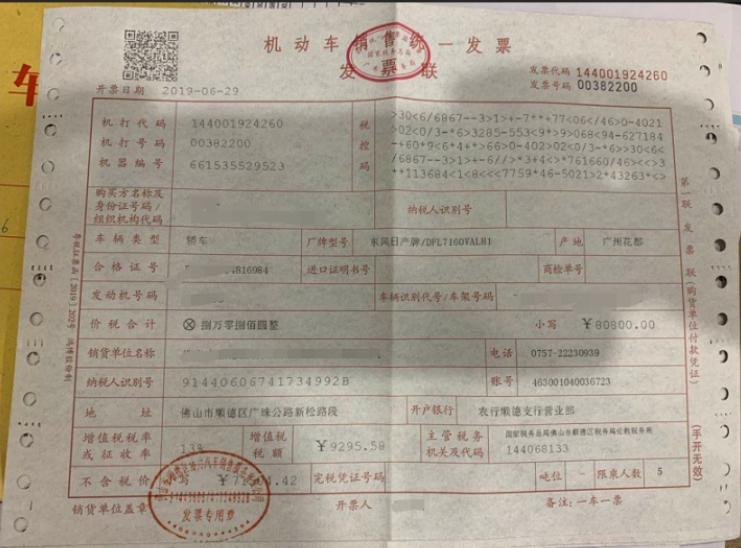 机动车销售统一发票
发票联
发票代码 144001924260
发票号码 00382200
开票日期 2019-06-29
机打代码 144001924260
机打号码 00382200
机器编号 661535529523
税控码
>30<6/6867--3>1>+-7**+77<06</40-4021
>02<0/3-*6>3285-553<9*>9>068<94-627184
-+60+9<6*4+*>66>0-402>02<0/3-*6>>30<6<
/6867--3>1>+-6//>*3+4<>*761660/46><<>3
**113684<1<8<<<7759*46-5021>2*43263*<>
购买方名称及
身份证号码/
组织机构代码
纳税人识别号
车辆类型 轿车 厂牌型号 东风日产牌/DFL7160VALH1 产地 广州花都
合格证号 4816984 进口证明书号 商检单号
发动机号码 车辆识别代号/车架号码
价税合计 ⊗ 捌万零捌佰圆整 小写 ￥80800.00
销货单位名称 电话 0757-22230939
纳税人识别号 91440606741734992B 账号 463001040036723
地址 佛山市顺德区广珠公路新松路段 开户银行 农行顺德支行营业部
增值税税率
或征收率
13%
增值税
税额
￥9295.58
主管税务
机关及代码
国家税务总局佛山市顺德区税务局伦教税务所
144068133
不含税价 小写 ￥ .42 完税凭证号码 吨位 - 限乘人数 5
销货单位盖章 开票人 备注:一车一票
发票专用章
第一联 发票联(购货单位付款凭证)
(手开无效)